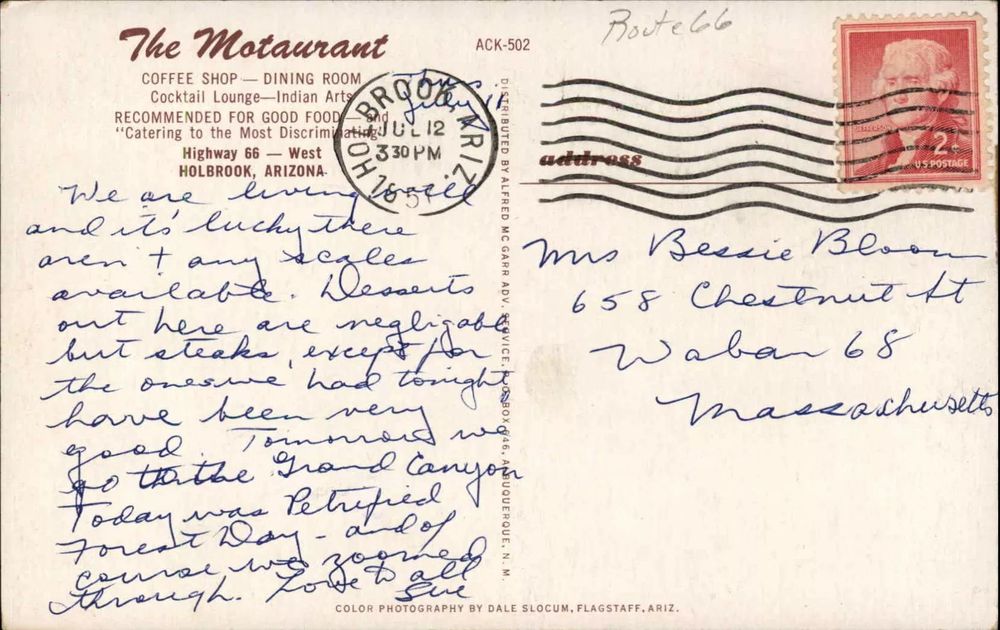 Route 66
The Motaurant
ACK-502
COFFEE SHOP — DINING ROOM
Cocktail Lounge—Indian Arts
RECOMMENDED FOR GOOD FOOD — and
"Catering to the Most Discriminating"
Highway 66 — West
HOLBROOK, ARIZONA
July 11
HOLBROOK, ARIZ.
JUL 12
3 30 PM
We are living well
and it's lucky there
aren't any scales
available. Desserts
out here are negligable
but steaks, except for
the ones we had tonight
have been very
good. Tomorrow we
go to the Grand Canyon
Today was Petrified
Forest Day - and of
course we zoomed
through. Love to all
Sue
DISTRIBUTED BY ALFRED MC GARR ADV. SERVICE, P.O. BOX 646, ALBUQUERQUE, N. M.
address
JEFFERSON
2¢
U.S. POSTAGE
Mrs Bessie Bloom
658 Chestnut St
Waban 68
Massachusetts
COLOR PHOTOGRAPHY BY DALE SLOCUM, FLAGSTAFF, ARIZ.